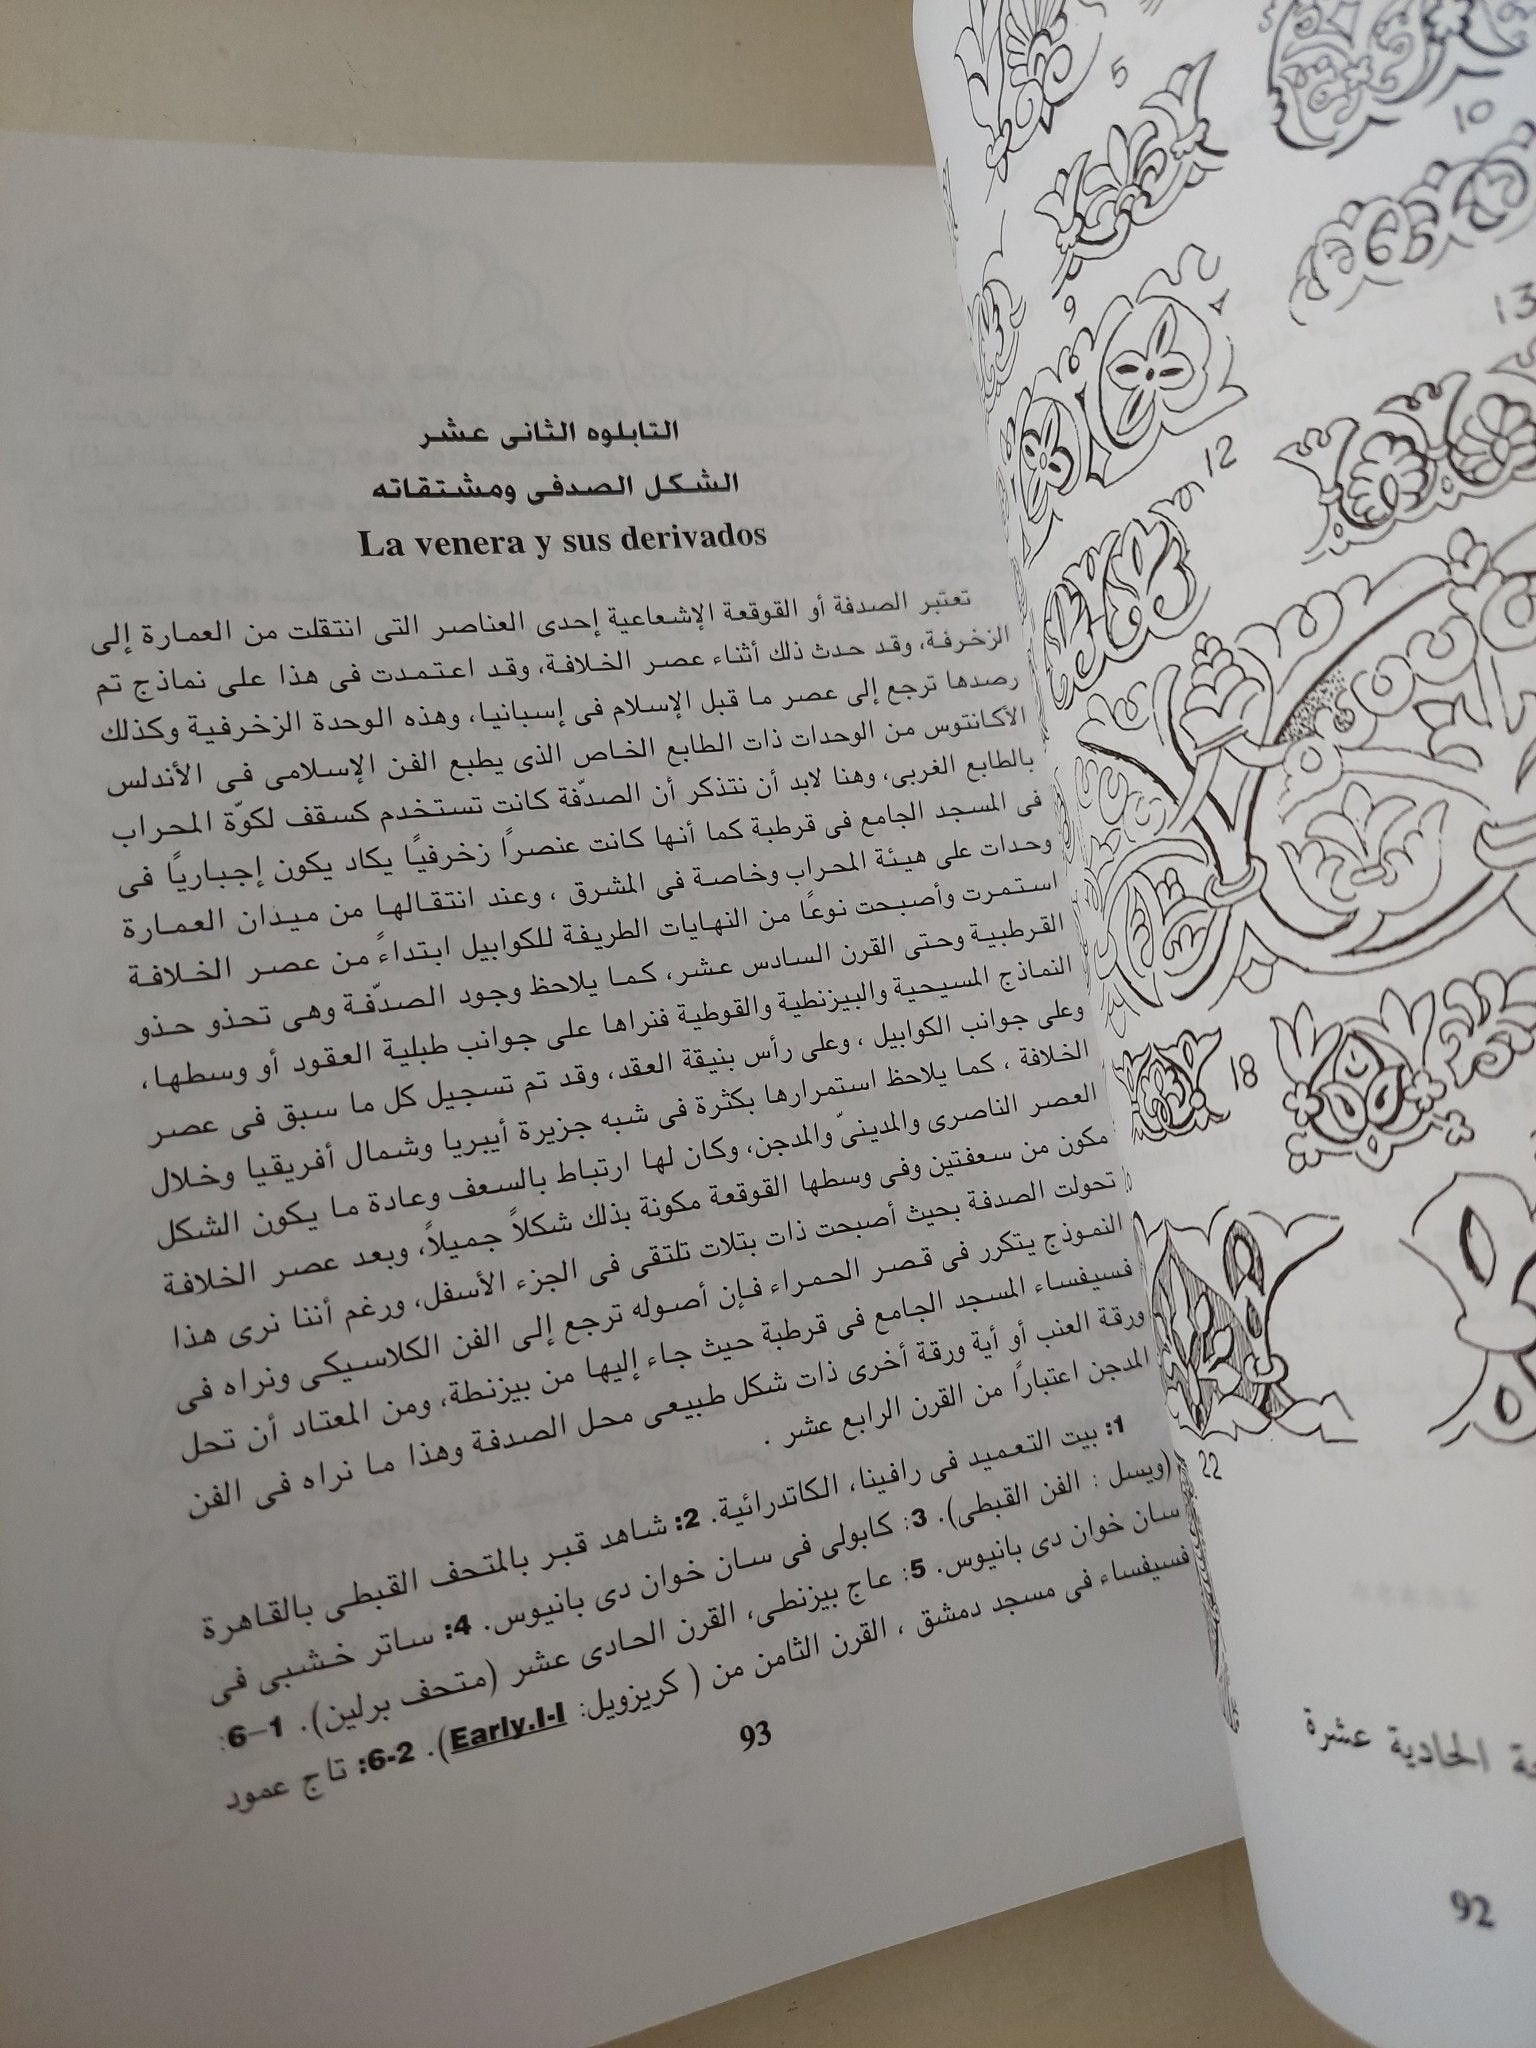 التابلوه الثانى عشر
الشكل الصدفى ومشتقاته
La venera y sus derivados
تعتبر الصدفة أو القوقعة الإشعاعية إحدى العناصر التى انتقلت من العمارة إلى
الزخرفة، وقد حدث ذلك أثناء عصر الخلافة، وقد اعتمدت فى هذا على نماذج تم
رصدها ترجع إلى عصر ما قبل الإسلام فى إسبانيا، وهذه الوحدة الزخرفية وكذلك
الأكانتوس من الوحدات ذات الطابع الخاص الذى يطبع الفن الإسلامى فى الأندلس
بالطابع الغربى، وهنا لابد أن نتذكر أن الصدّفة كانت تستخدم كسقف لكوّة المحراب
فى المسجد الجامع فى قرطبة كما أنها كانت عنصرًا زخرفيًا يكاد يكون إجباريًا فى
وحدات على هيئة المحراب وخاصة فى المشرق ، وعند انتقالها من ميدان العمارة
استمرت وأصبحت نوعًا من النهايات الطريفة للكوابيل ابتداءً من عصر الخلافة
القرطبية وحتى القرن السادس عشر، كما يلاحظ وجود الصدّفة وهى تحذو حذو
النماذج المسيحية والبيزنطية والقوطية فنراها على جوانب طبلية العقود أو وسطها،
وعلى جوانب الكوابيل ، وعلى رأس بنيقة العقد، وقد تم تسجيل كل ما سبق فى عصر
الخلافة ، كما يلاحظ استمرارها بكثرة فى شبه جزيرة أيبريا وشمال أفريقيا وخلال
العصر الناصرى والمدينىّ والمدجن، وكان لها ارتباط بالسعف وعادة ما يكون الشكل
مكون من سعفتين وفى وسطها القوقعة مكونة بذلك شكلاً جميلاً، وبعد عصر الخلافة
تحولت الصدفة بحيث أصبحت ذات بتلات تلتقى فى الجزء الأسفل، ورغم أننا نرى هذا
النموذج يتكرر فى قصر الحمراء فإن أصوله ترجع إلى الفن الكلاسيكى ونراه فى
فسيفساء المسجد الجامع فى قرطبة حيث جاء إليها من بيزنطة، ومن المعتاد أن تحل
ورقة العنب أو أية ورقة أخرى ذات شكل طبيعى محل الصدفة وهذا ما نراه فى الفن
المدجن اعتبارًا من القرن الرابع عشر .
1: بيت التعميد فى رافينا، الكاتدرائية. 2: شاهد قبر بالمتحف القبطى بالقاهرة
(ويسل : الفن القبطى). 3: كابولى فى سان خوان دى بانيوس. 4: ساتر خشبى فى
سان خوان دى بانيوس. 5: عاج بيزنطى، القرن الحادى عشر (متحف برلين). 1–6:
فسيفساء فى مسجد دمشق ، القرن الثامن من ( كريزويل: Early.I-I). 6-2: تاج عمود
93
5
10
9
13
12
18
22
الحادية عشرة
92